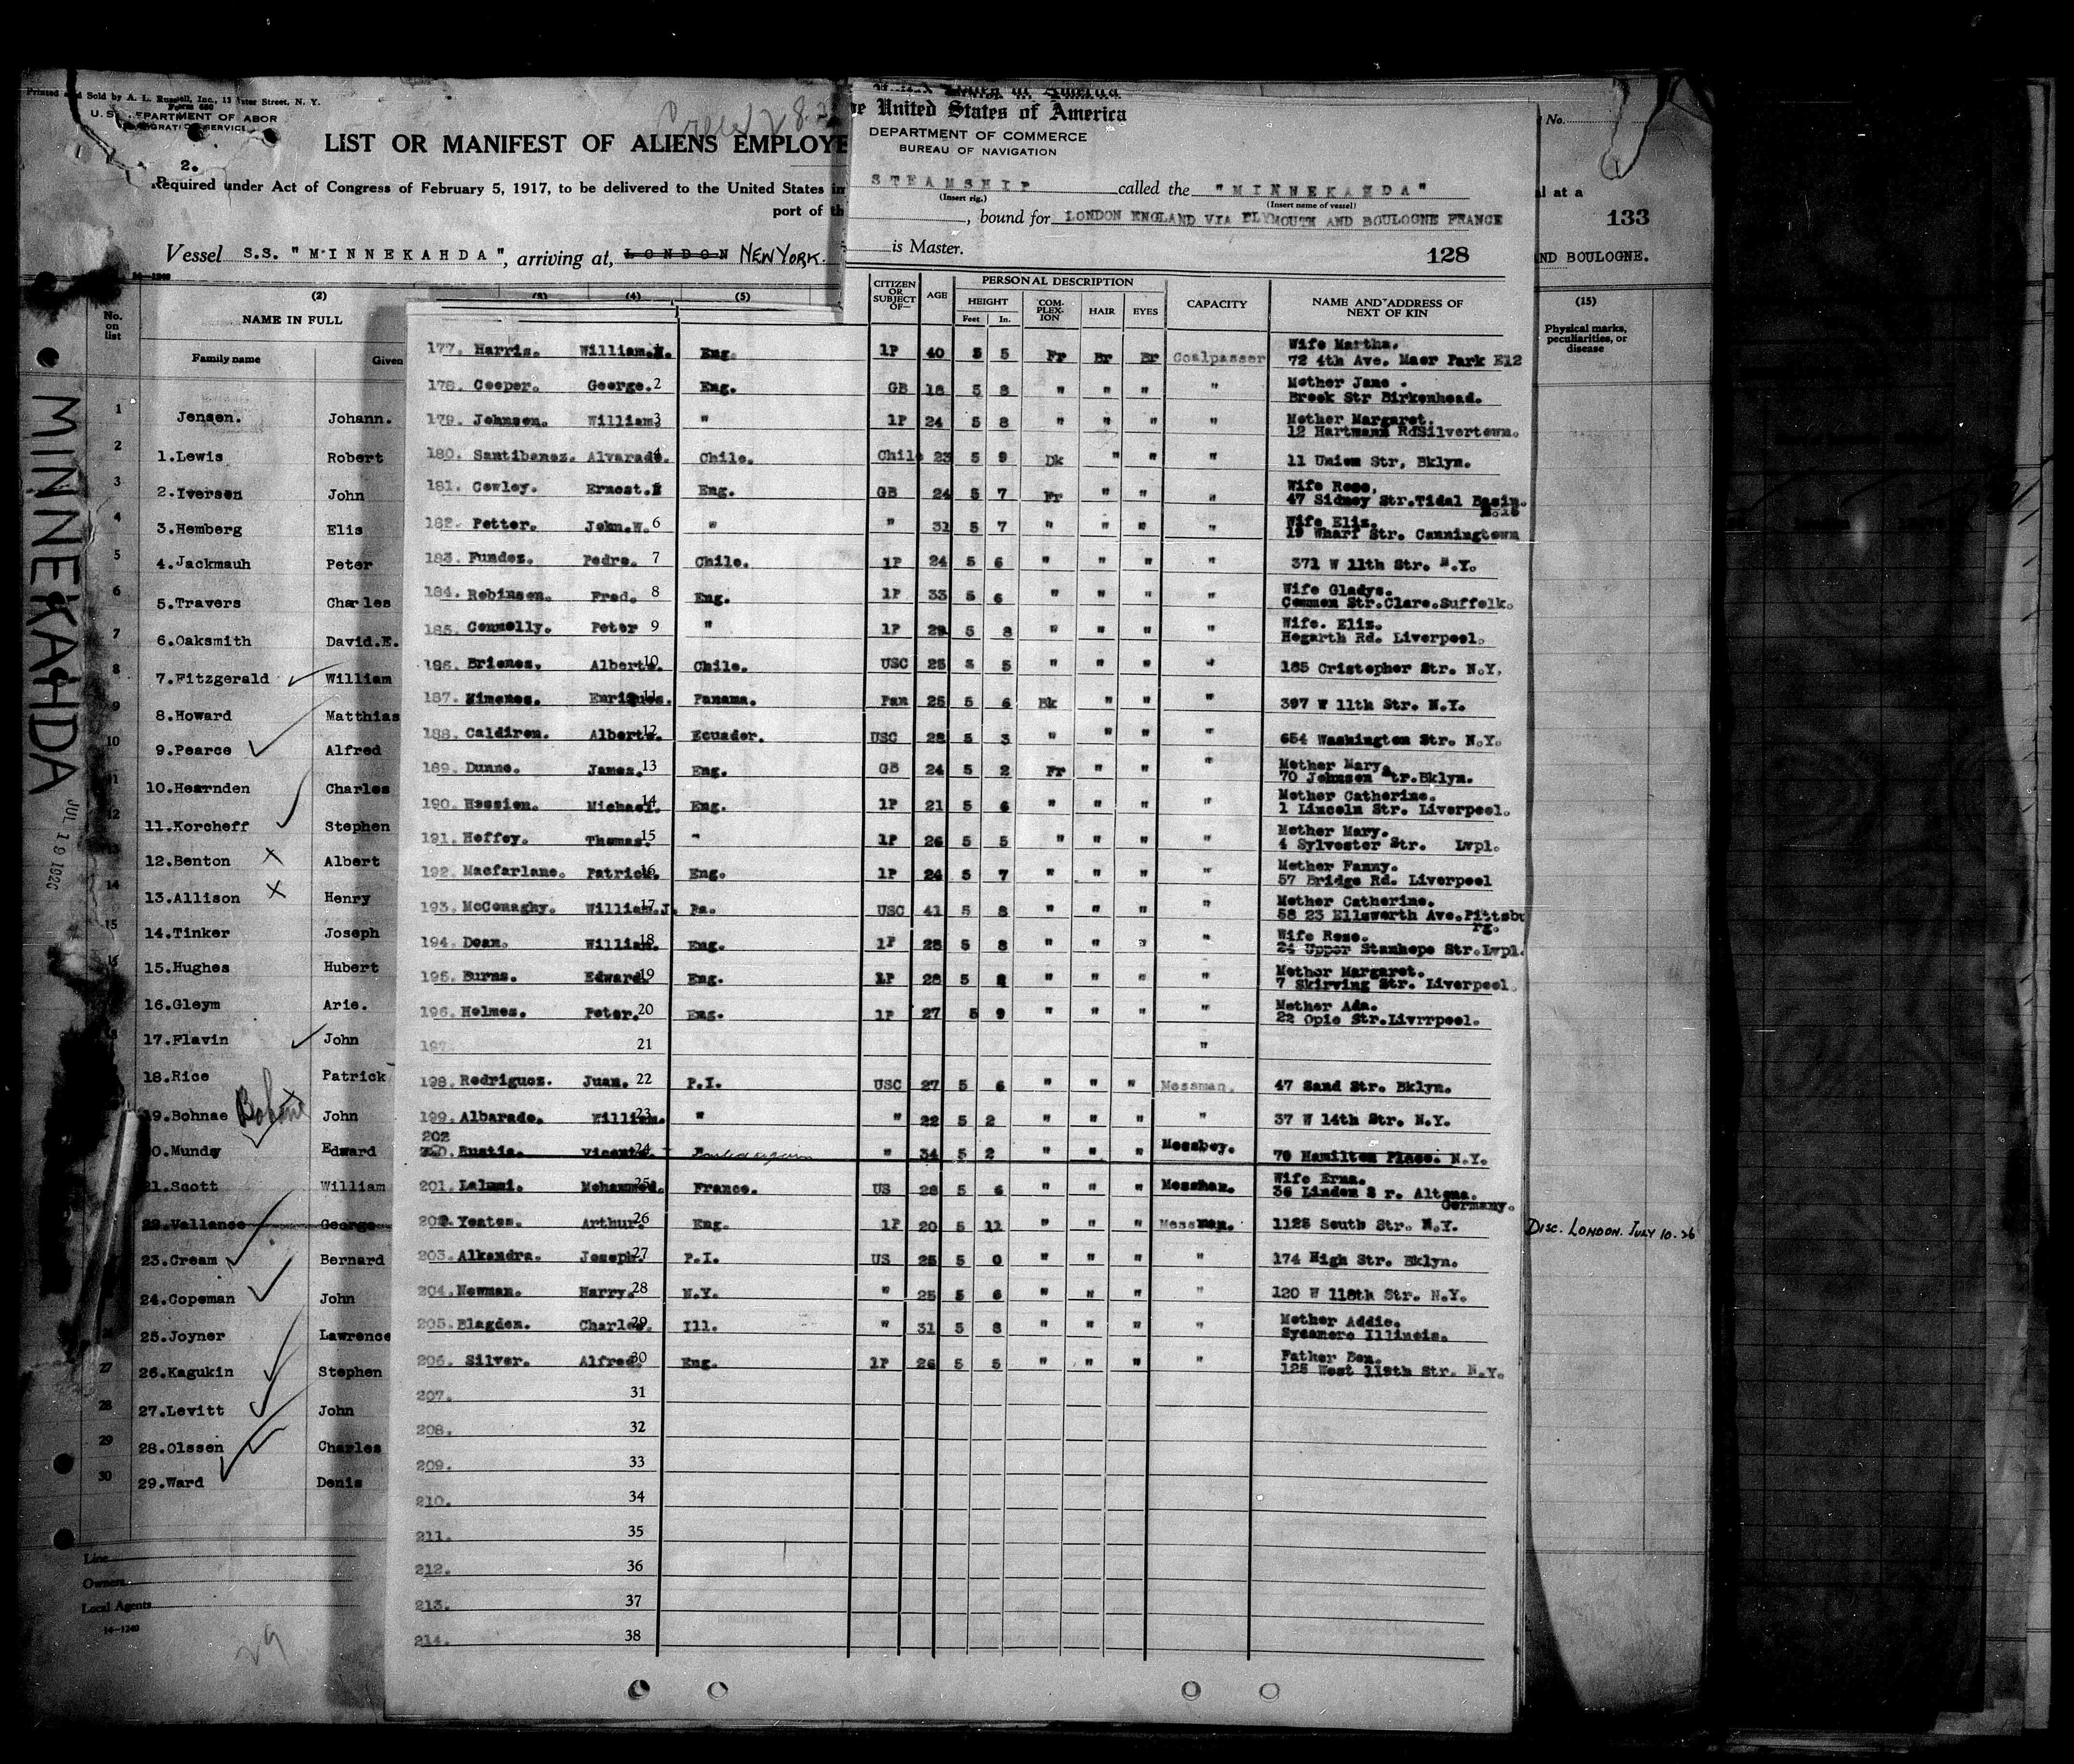 Printed and Sold by A. L. Russell, Inc., 13 Water Street, N. Y.
Form 680
LIST OR MANIFEST OF ALIENS EMPLOYE
2.
Required under Act of Congress of February 5, 1917, to be delivered to the United States in
port of th
Vessel S.S. "MINNEKAHDA", arriving at, LONDON NEW YORK.
(2) (3) (4) (5)
No. on list
NAME IN FULL
Family name Given
1 Jensen. Johann.
2 1.Lewis Robert
3 2.Iversen John
4 3.Hemberg Elis
5 4.Jackmauh Peter
6 5.Travers Charles
7 6.Oaksmith David.E.
8 7.Fitzgerald William
9 8.Howard Matthias
10 9.Pearce Alfred
11 10.Hearnden Charles
12 11.Korcheff Stephen
13 12.Benton Albert
14 13.Allison Henry
15 14.Tinker Joseph
16 15.Hughes Hubert
16.Gleym Arie.
18 17.Flavin John
18.Rice Patrick
19.Bohnae Bohne John
0.Mundy Edward
21.Scott William
22.Vallance George
23.Cream Bernard
24.Copeman John
25.Joyner Lawrence
27 26.Kagukin Stephen
28 27.Levitt John
29 28.Olssen Charles
30 29.Ward Denis
Line
Owners
Local Agents
14-1240
29
MINNEKAHDA
JUL 19 1926
e United States of America
DEPARTMENT OF COMMERCE
BUREAU OF NAVIGATION
STEAMSHIP called the "MINNEKAHDA"
(Insert rig.) (Insert name of vessel)
, bound for LONDON ENGLAND VIA PLYMOUTH AND BOULOGNE FRANCE
is Master. 128
CITIZEN OR SUBJECT OF— AGE PERSONAL DESCRIPTION CAPACITY NAME AND ADDRESS OF NEXT OF KIN
HEIGHT COM-PLEX-ION HAIR EYES
Feet In.
177. Harris. William. Eng. 1P 40 5 5 Fr Br Br Coalpasser Wife Martha.
72 4th Ave. Maer Park E12
178. Cooper. George. 2 Eng. GB 18 5 8 " " " " Mother Jane.
Brook Str Birkenhead.
179. Johnson. William. 3 " 1P 24 5 8 " " " " Mother Margaret.
12 Hartmann Rd Silvertown.
180. Santibanez. Alvarado. 4 Chile. Chile 23 5 9 Dk " " " 11 Union Str, Bklyn.
181. Cowley. Ernest. Eng. GB 24 5 7 Fr " " " Wife Rose,
47 Sidney Str.Tidal Basin.
182. Potter. John.W. 6 " " 31 5 7 " " " Wife Eliz.
19 Wharf Str. Canningtown
183. Fundez. Pedro. 7 Chile. 1P 24 5 6 " " " " 371 W 11th Str. N.Y.
184. Robinson. Fred. 8 Eng. 1P 33 5 6 " " " " Wife Gladys.
Common Str.Clare.Suffolk.
185. Connolly. Peter 9 " 1P 29 5 8 " " " " Wife. Eliz.
Hogarth Rd. Liverpool.
186. Briones. Alberto. 10 Chile. USC 25 5 5 " " " " 185 Cristopher Str. N.Y.
187. Ximenes. Enriques. 11 Panama. Pan 25 5 6 Bk " " " 397 W 11th Str. N.Y.
188. Caldiron. Alberto. 12 Ecuador. USC 28 5 3 " " " " 654 Washington Str. N.Y.
189. Dunne. James. 13 Eng. GB 24 5 2 Fr " " " Mother Mary.
70 Johnson Str.Bklyn.
190. Hession. Michael. 14 Eng. 1P 21 5 6 " " " " Mother Catherine.
1 Lincoln Str. Liverpool.
191. Heffey. Thomas. 15 " 1P 26 5 5 " " " " Mother Mary.
4 Sylvester Str. Lvpl.
192. Macfarlane. Patrick. 16 Eng. 1P 24 5 7 " " " " Mother Fanny.
57 Bridge Rd. Liverpool
193. McConaghy. William.J. 17 Pa. USC 41 5 8 " " " " Mother Catherine.
58 23 Ellsworth Ave.Pittsbu
rg.
194. Dean. William. 18 Eng. 1P 28 5 8 " " " " Wife Rose.
24 Upper Stanhope Str.Lvpl.
195. Burns. Edward. 19 Eng. 1P 28 5 8 " " " " Mother Margaret.
7 Skirving Str. Liverpool.
196. Holmes. Peter. 20 Eng. 1P 27 5 9 " " " " Mother Ada.
22 Opie Str.Livrrpool.
197. 21 "
198. Rodriguez. Juan. 22 P.I. USC 27 5 6 " " " Messman. 47 Sand Str. Bklyn.
199. Albarado. William. 23 " " 22 5 2 " " " " 37 W 14th Str. N.Y.
202
Bustia. Vicente. 24 " 34 5 2 " " " Messboy. 70 Hamilton Place. N.Y.
201. Lalami. Mohammed. 25 France. US 28 5 6 " " " Messman. Wife Erna.
36 Linden S r. Altona.
Germany.
202. Yeates. Arthur. 26 Eng. 1P 20 5 11 " " " Messman. 1125 South Str. N.Y.
203. Alkandra. Joseph. 27 P.I. US 25 5 0 " " " " 174 High Str. Bklyn.
204. Newman. Harry. 28 N.Y. " 25 5 6 " " " " 120 W 118th Str. N.Y.
205. Blagden. Charles. 29 Ill. " 31 5 8 " " " " Mother Addie.
Sycamore Illinois.
206. Silver. Alfred. 30 Eng. 1P 26 5 5 " " " " Father Ben.
125 West 118th Str. N.Y.
207. 31
208. 32
209. 33
210. 34
211. 35
212. 36
213. 37
214. 38
No.
al at a
133
AND BOULOGNE.
(15)
Physical marks, peculiarities, or disease
DISC. LONDON. JULY 10.26